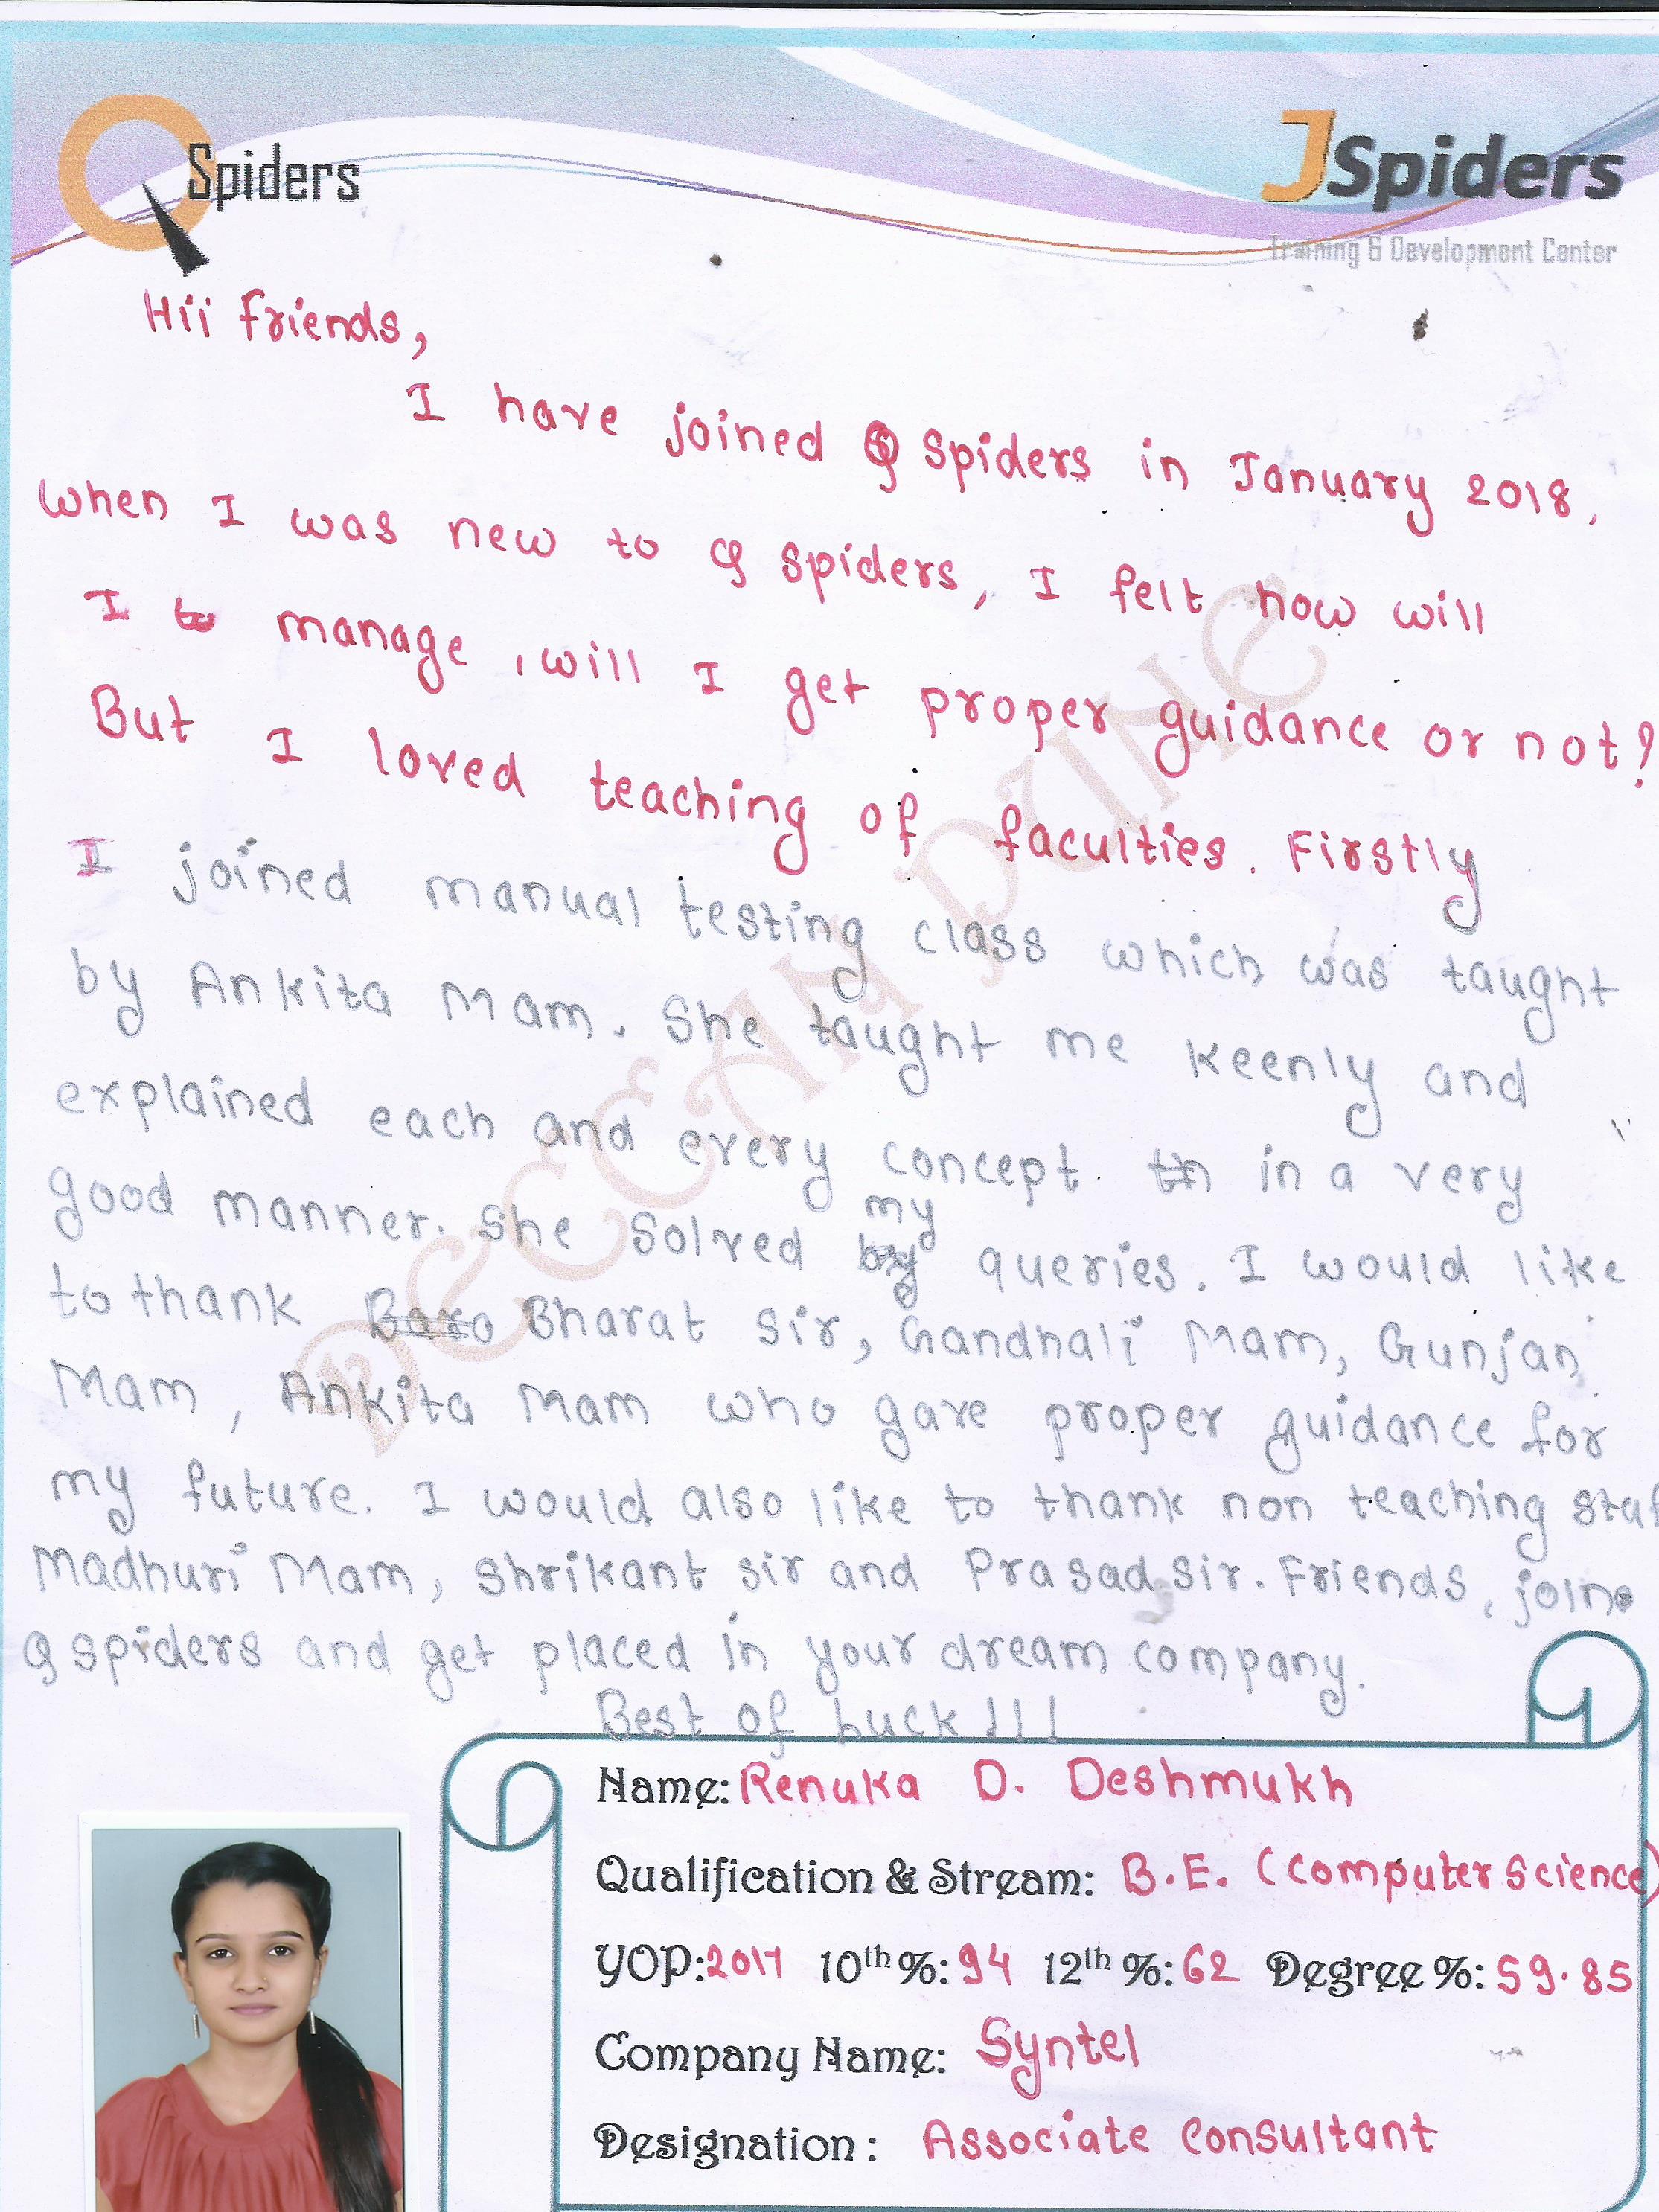 Q Spiders
JSpiders
Training & Development Center
Hii friends,
I have joined Q Spiders in January 2018,
when I was new to Q Spiders, I felt how will
I to manage, will I get proper guidance or not?
But I loved teaching of faculties. Firstly
I joined manual testing class which was taught
by Ankita Mam. She taught me keenly and
explained each and every concept. th in a very
good manner. She solved by my queries. I would like
to thank Baro Bharat sir, Gandhali Mam, Gunjan
Mam, Ankita Mam who gave proper guidance for
my future. I would also like to thank non teaching staf
Madhuri Mam, Shrikant sir and Prasad sir. Friends, join
Q spiders and get placed in your dream company.
Best of Luck!!!
DECCAN DZINE
Name: Renuka D. Deshmukh
Qualification & Stream: B.E. (Computer Science)
YOP: 2017 10th %: 94 12th %: 62 Degree %: 59.85
Company Name: Syntel
Designation: Associate Consultant